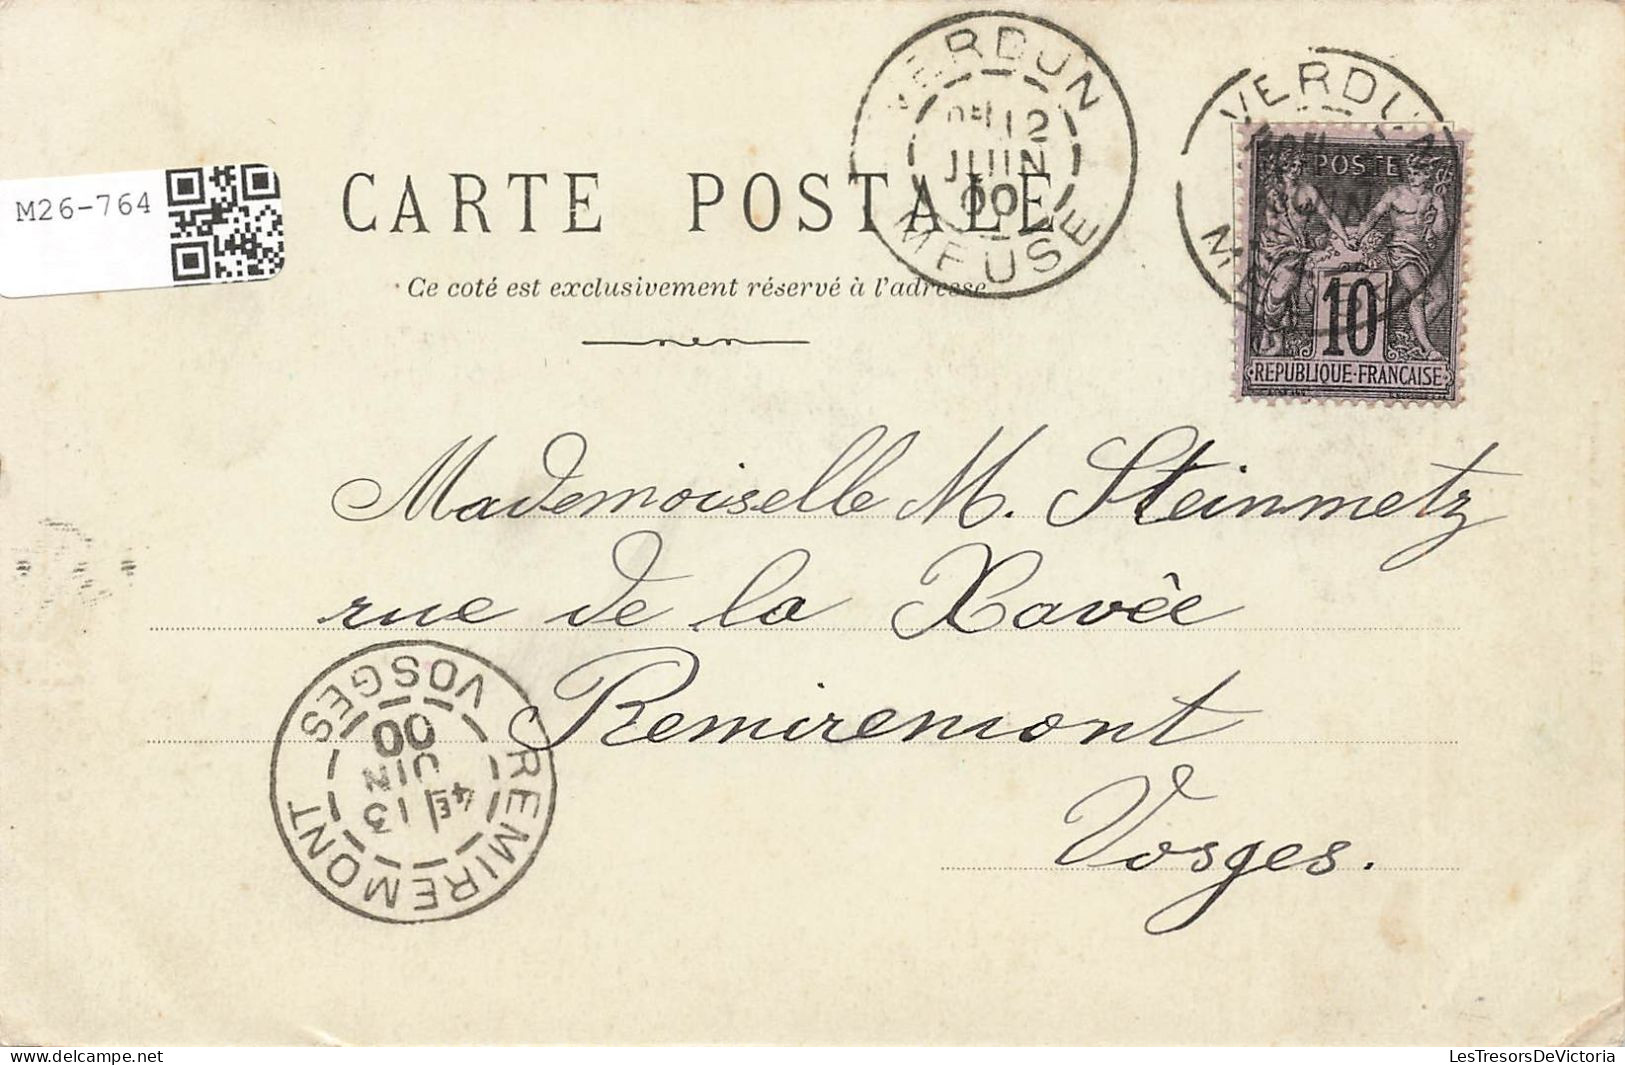 VERDUN
12
JUIN
00
MEUSE
VERDUN
POSTE
10
REPUBLIQUE·FRANCAISE
M26-764
CARTE POSTALE
Ce coté est exclusivement réservé à l'adresse
Mademoiselle M. Steinmetz
rue de la Xavée
Remiremont
Vosges.
REMIREMONT
4E
13
JUIN
00
VOSGES
LesTresorsDeVictoria